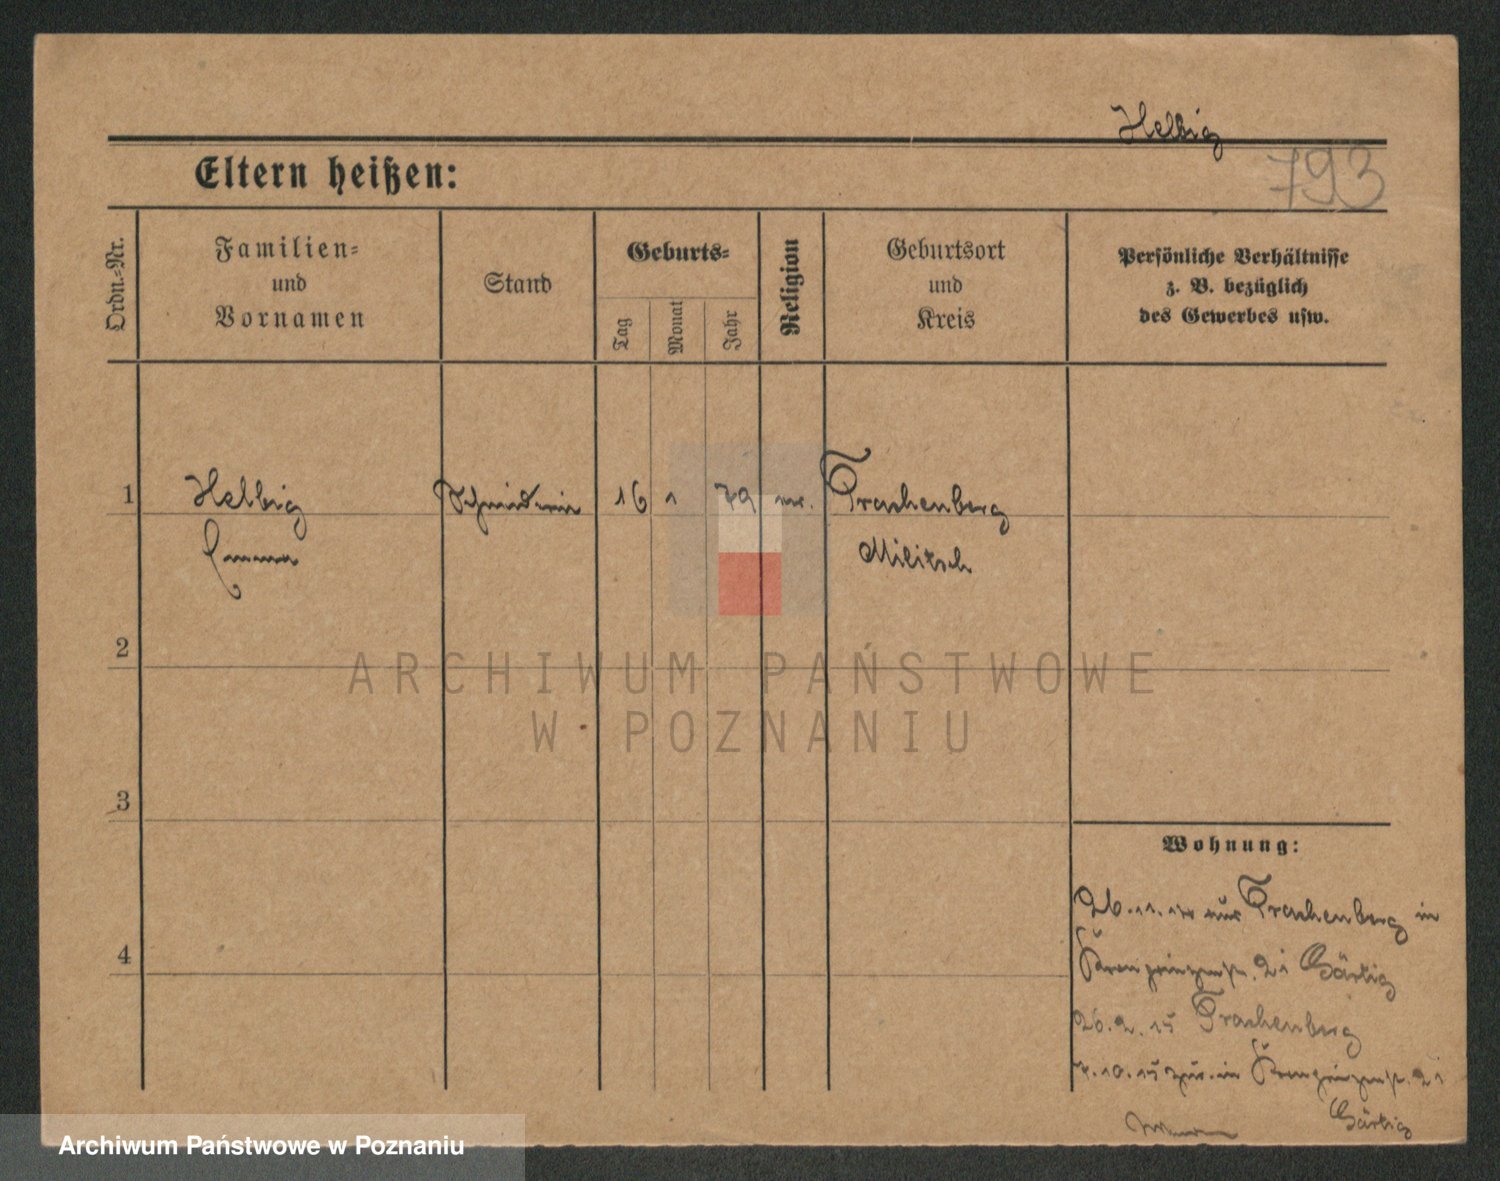 Helbig
793
Eltern heißen:
Ordn.-Nr.
Familien-
und
Vornamen
Stand
Geburts-
Tag
Monat
Jahr
Religion
Geburtsort
und
Kreis
Persönliche Verhältnisse
z. B. bezüglich
des Gewerbes usw.
1 Helbig Schneiderin 16 1 79 ev. Trachenberg
Emma Militsch
2
3
4
ARCHIWUM PAŃSTWOWE
W POZNANIU
Wohnung:
26.11.14 aus Trachenberg in
Kronprinzenstr. 21 Gärtig
26.2.15 Trachenberg
7.10.15 zur. in Kronprinzenstr. 21
Gärtig
Archiwum Państwowe w Poznaniu